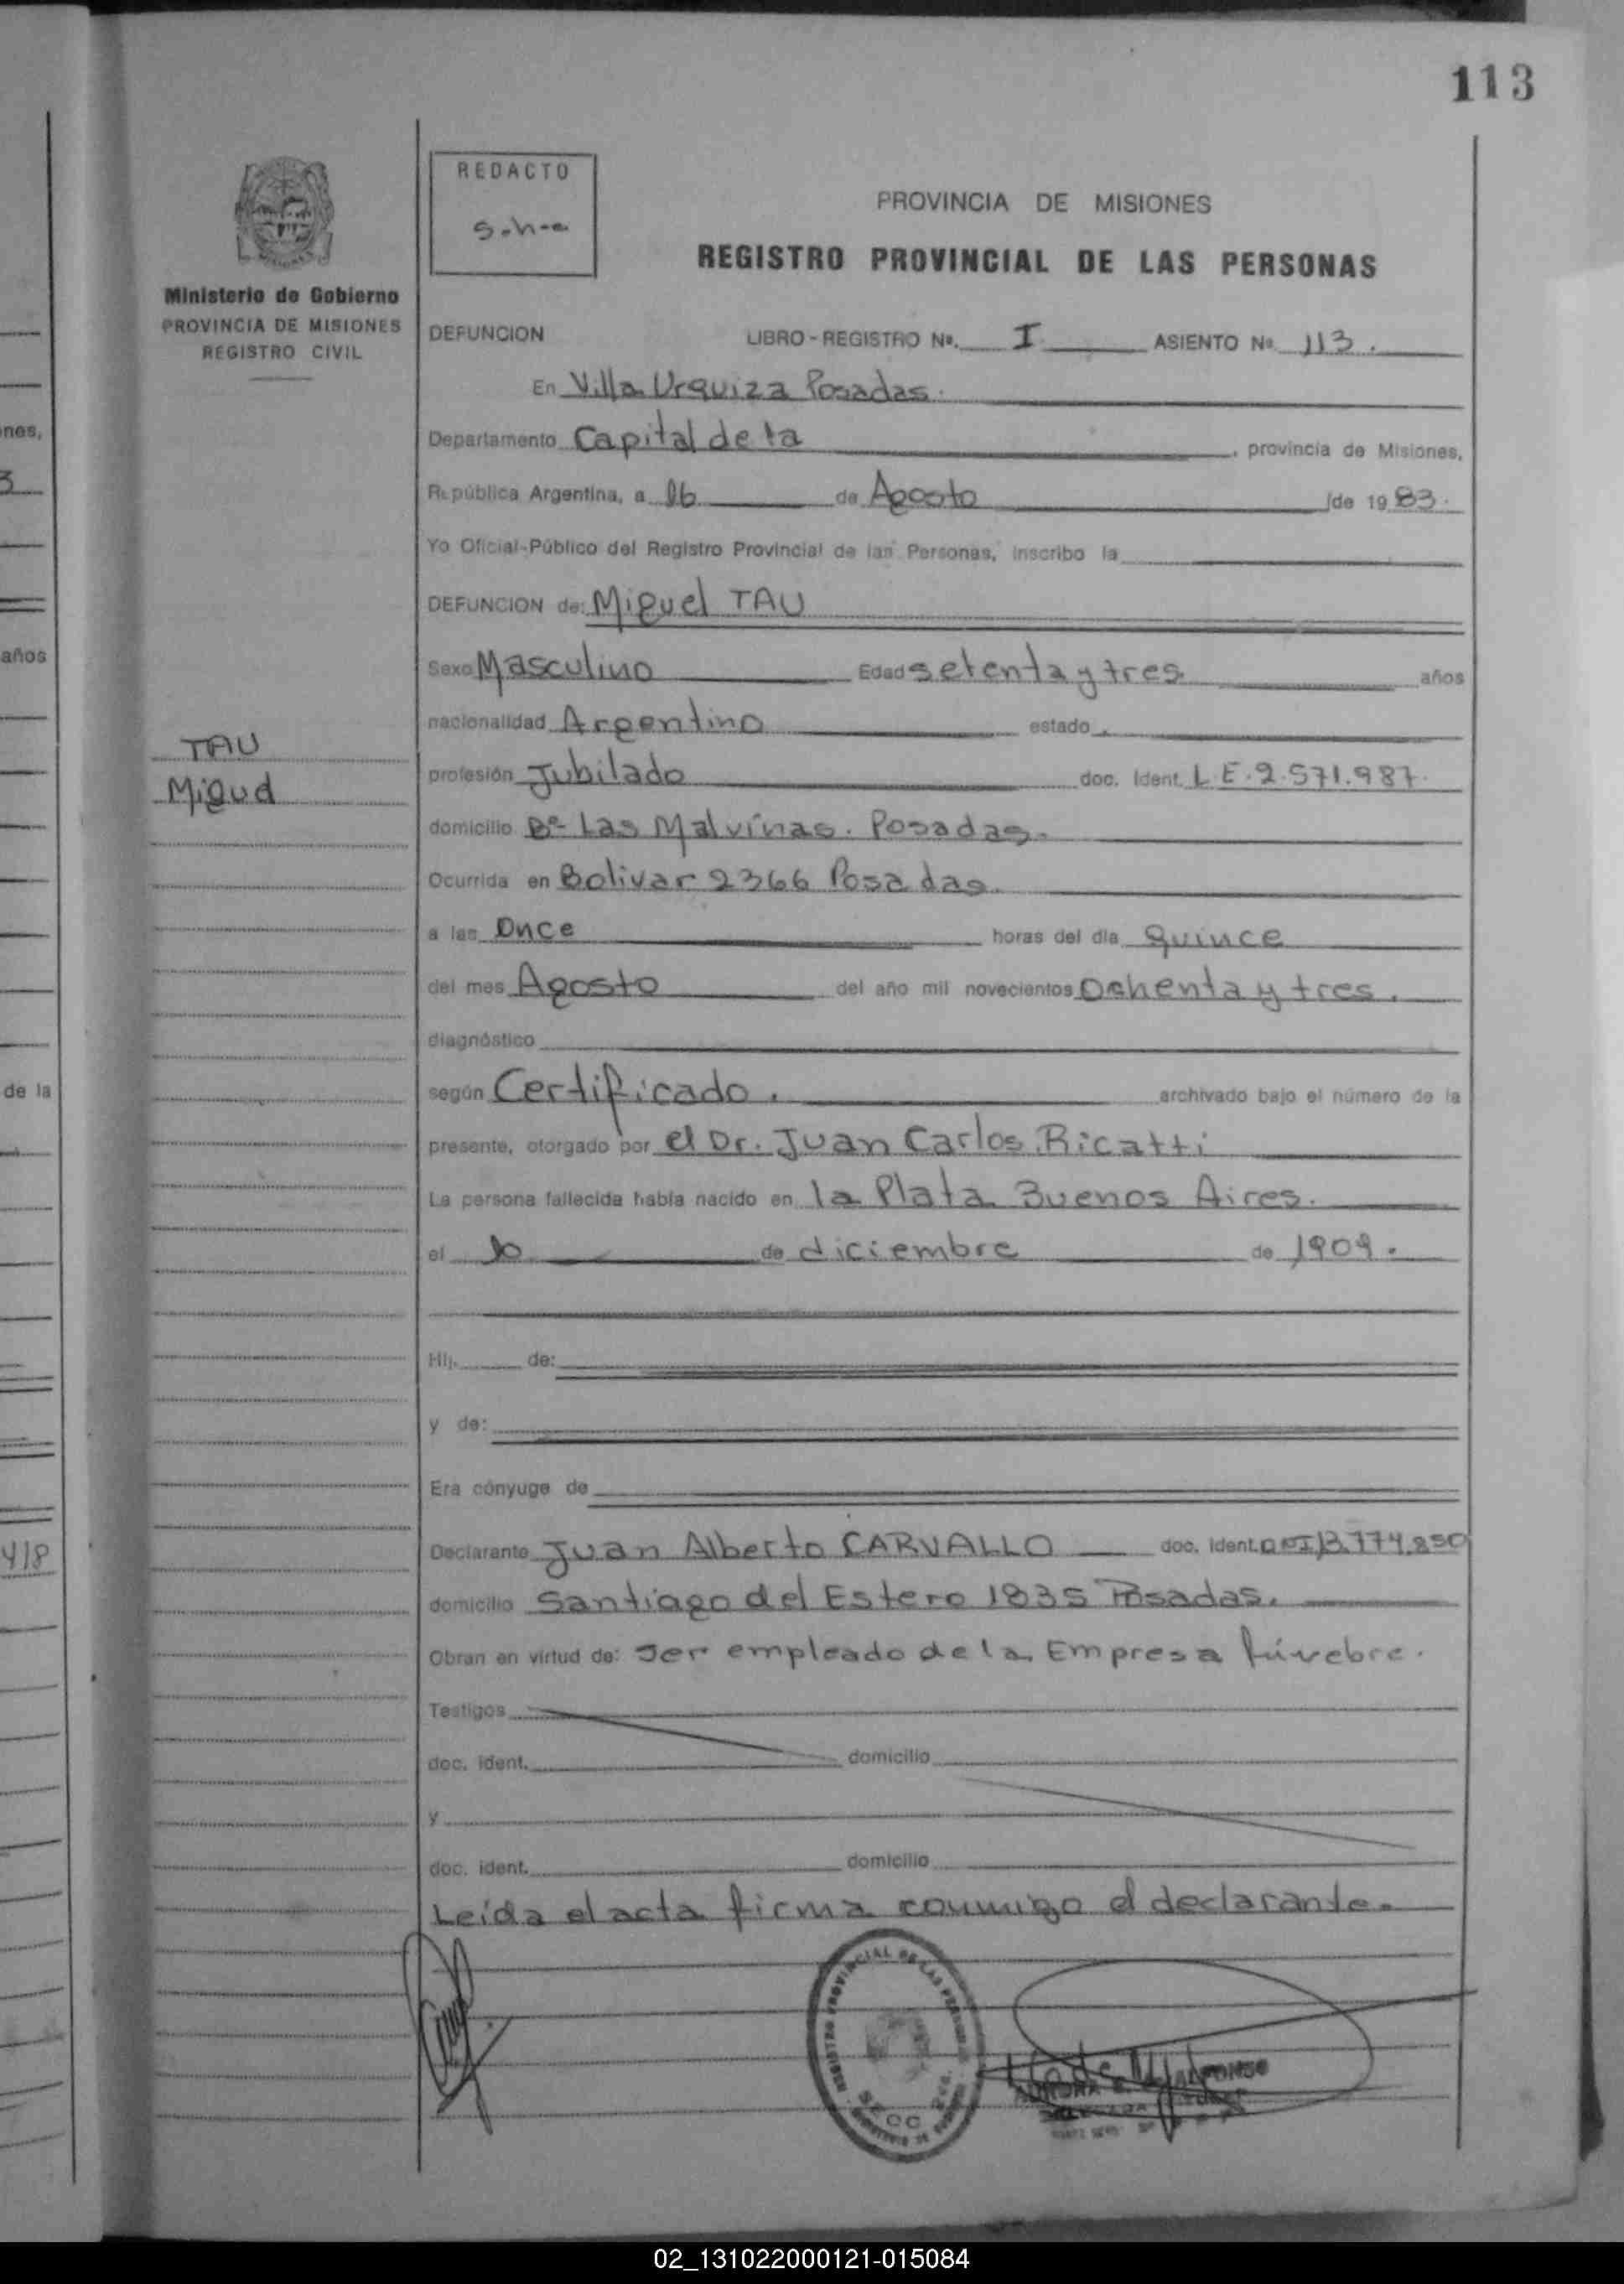 113
REDACTO
PROVINCIA DE MISIONES
REGISTRO PROVINCIAL DE LAS PERSONAS
Ministerio de Gobierno
PROVINCIA DE MISIONES
REGISTRO CIVIL
DEFUNCION LIBRO-REGISTRO Nº. I ASIENTO Nº 113.
En Villa Urquiza Posadas.
Departamento Capital de la , provincia de Misiones,
República Argentina, a 16 de Agosto de 1983.
Yo Oficial-Público del Registro Provincial de las Personas, inscribo la
DEFUNCION de: Miguel TAU
Sexo Masculino Edad setenta y tres años
nacionalidad Argentino estado
TAU
Miguel
profesión Jubilado doc. Ident. L.E. 2.571.987.
domicilio Bº Las Malvinas. Posadas.
Ocurrida en Bolivar 2366 Posadas.
a las Once horas del día quince
del mes Agosto del año mil novecientos Ochenta y tres.
diagnóstico
según Certificado. archivado bajo el número de la
presente, otorgado por el Dr. Juan Carlos Ricatti
La persona fallecida había nacido en la Plata Buenos Aires.
el 10 de diciembre de 1909.
Hij. de:
y de:
Era cónyuge de
Declarante Juan Alberto CARVALLO doc. Ident. DNI 13.774.850
domicilio Santiago del Estero 1835 Posadas.
Obran en virtud de: Ser empleado de la Empresa fúnebre.
Testigos
doc. ident. domicilio
y
doc. ident. domicilio
Leída el acta firma conmigo el declarante.
nes,
3
años
de la
418
02_131022000121-015084